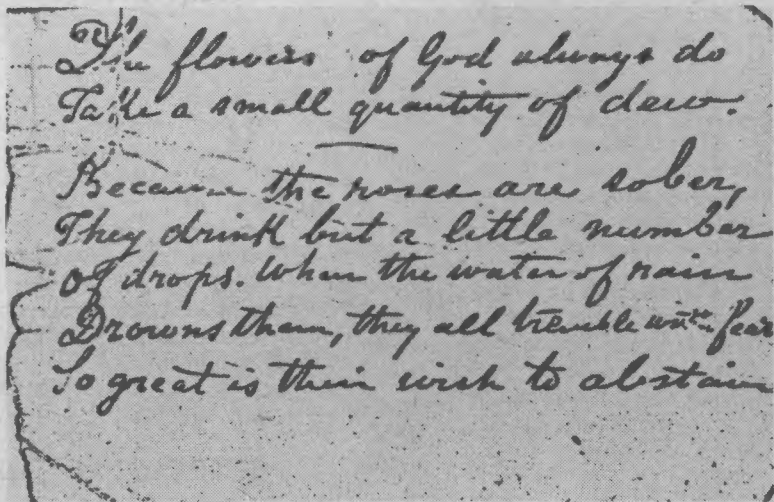 The flowers of God always do
Take a small quantity of dew.
Because the roses are sober,
They drink but a little number
of drops. When the water of rain
Drowns them, they all tremble with fear
So great is their wish to abstain